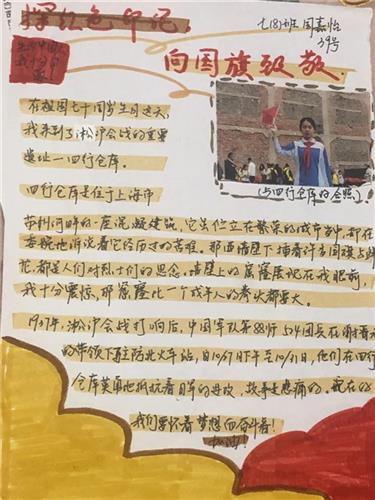 探红色印记.
七(8)班 周嘉怡
39号
向国旗致敬.
在祖国七十周岁生日这天,
我来到了淞沪会战的重要
遗址—四行仓库.
(与四行仓库的合照)
四行仓库是位于上海市
苏州河畔的一座混凝建筑,它虽伫立在繁荣的城市当中,却在
着许多国旗与鲜
花,都是人们对烈士们的思念,墙壁上的窟窿层记在我眼前,
我十分震惊,那窟窿比一个成年人的拳头都要大.
1937年,淞沪会战打响后,中国军队第88师524团兵在谢晋元
的带领下驻防北火车站,自10月 日下午至10月31日,他们在四行
仓库英勇地抵抗着日军的进攻,故事是悲痛的,
我们要怀着梦想而奋斗着!
加油!